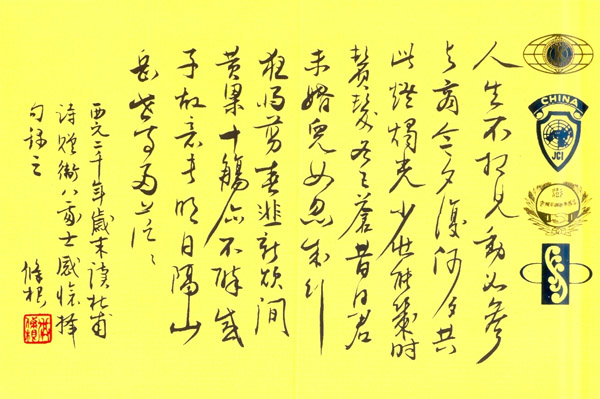 人生不相見動如參
与商今夕復何夕共
此燈燭光少壯能幾時
鬢髮各已蒼昔日君
未婚兒女忽成行
夜雨剪春韭新炊間
黄粱十觴亦不醉感
子故意長明日隔山
岳世事兩茫〻
西元二千年歲末讀杜甫
诗贈衛八處士感懷擇
句録之
CHINA
JCI